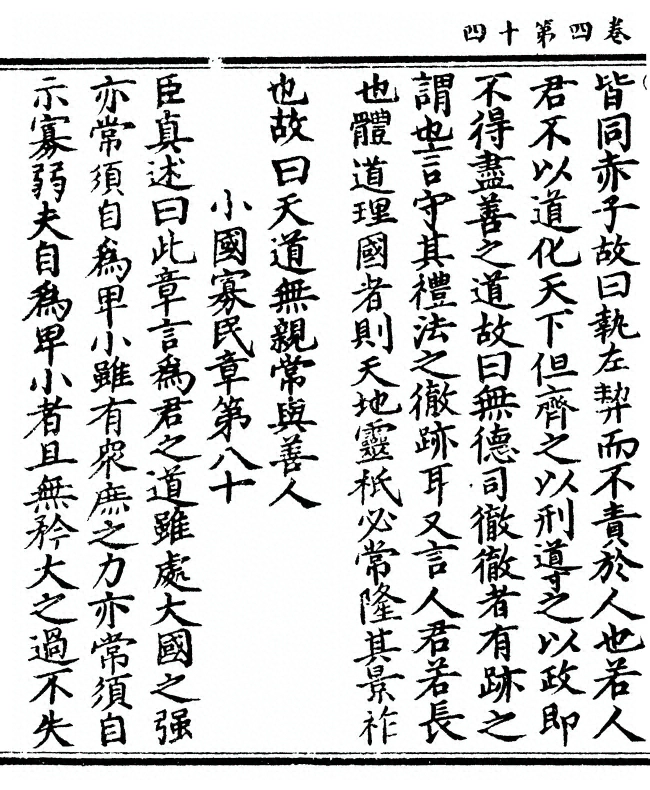 卷四第十四
皆同赤子故曰執左契而不責於人也若人
君不以道化天下但齊之以刑導之以政即
不得盡善之道故曰無德司徹徹者有跡之
謂也言守其禮法之徹跡耳又言人君若長
也體道理國者則天地靈祇必常隆其景祚
也故曰天道無親常與善人
小國寡民章第八十
臣真述曰此章言為君之道雖處大國之强
亦常須自為卑小雖有眾庶之力亦常須自
示寡弱夫自為卑小者且無矜大之過不失